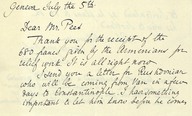 Geneva July the 5th
Dear Mr Peet
Thank you for the receipt of the
680 paid by the Armenians for
relief work. It is all right now.
I send you a letter for
who will be coming from Van in a few
days to Constantinople. I has something
important to let him know before he comes